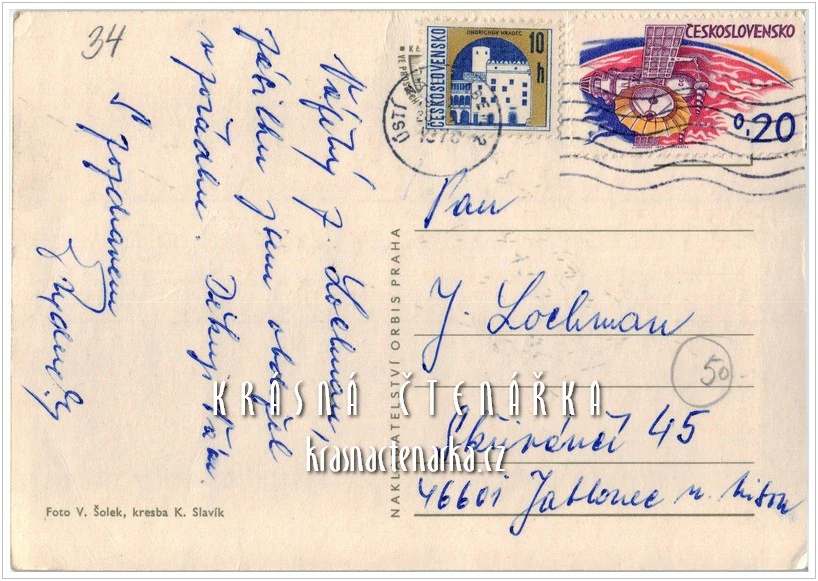 34
Vážený p. Lochman,
zásilku jsem obdržel
v pořádku. Děkuji Vám.
S pozdravem
JINDŘICHŮV HRADEC
ČESKOSLOVENSKO
10 h
ČESKOSLOVENSKO
0,20
ÚSTÍ
2
Pan
J. Lochman
50
Skřivánčí 45
46601 Jablonec n. Nisou
NAKLADATELSTVÍ ORBIS PRAHA
Foto V. Šolek, kresba K. Slavík
KRÁSNÁ ČTENÁŘKA
krasnactenarka.cz